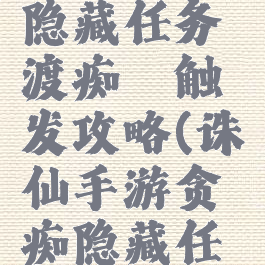 隐藏任务
渡痴 触
发攻略(诛
仙手游贪
痴隐藏任